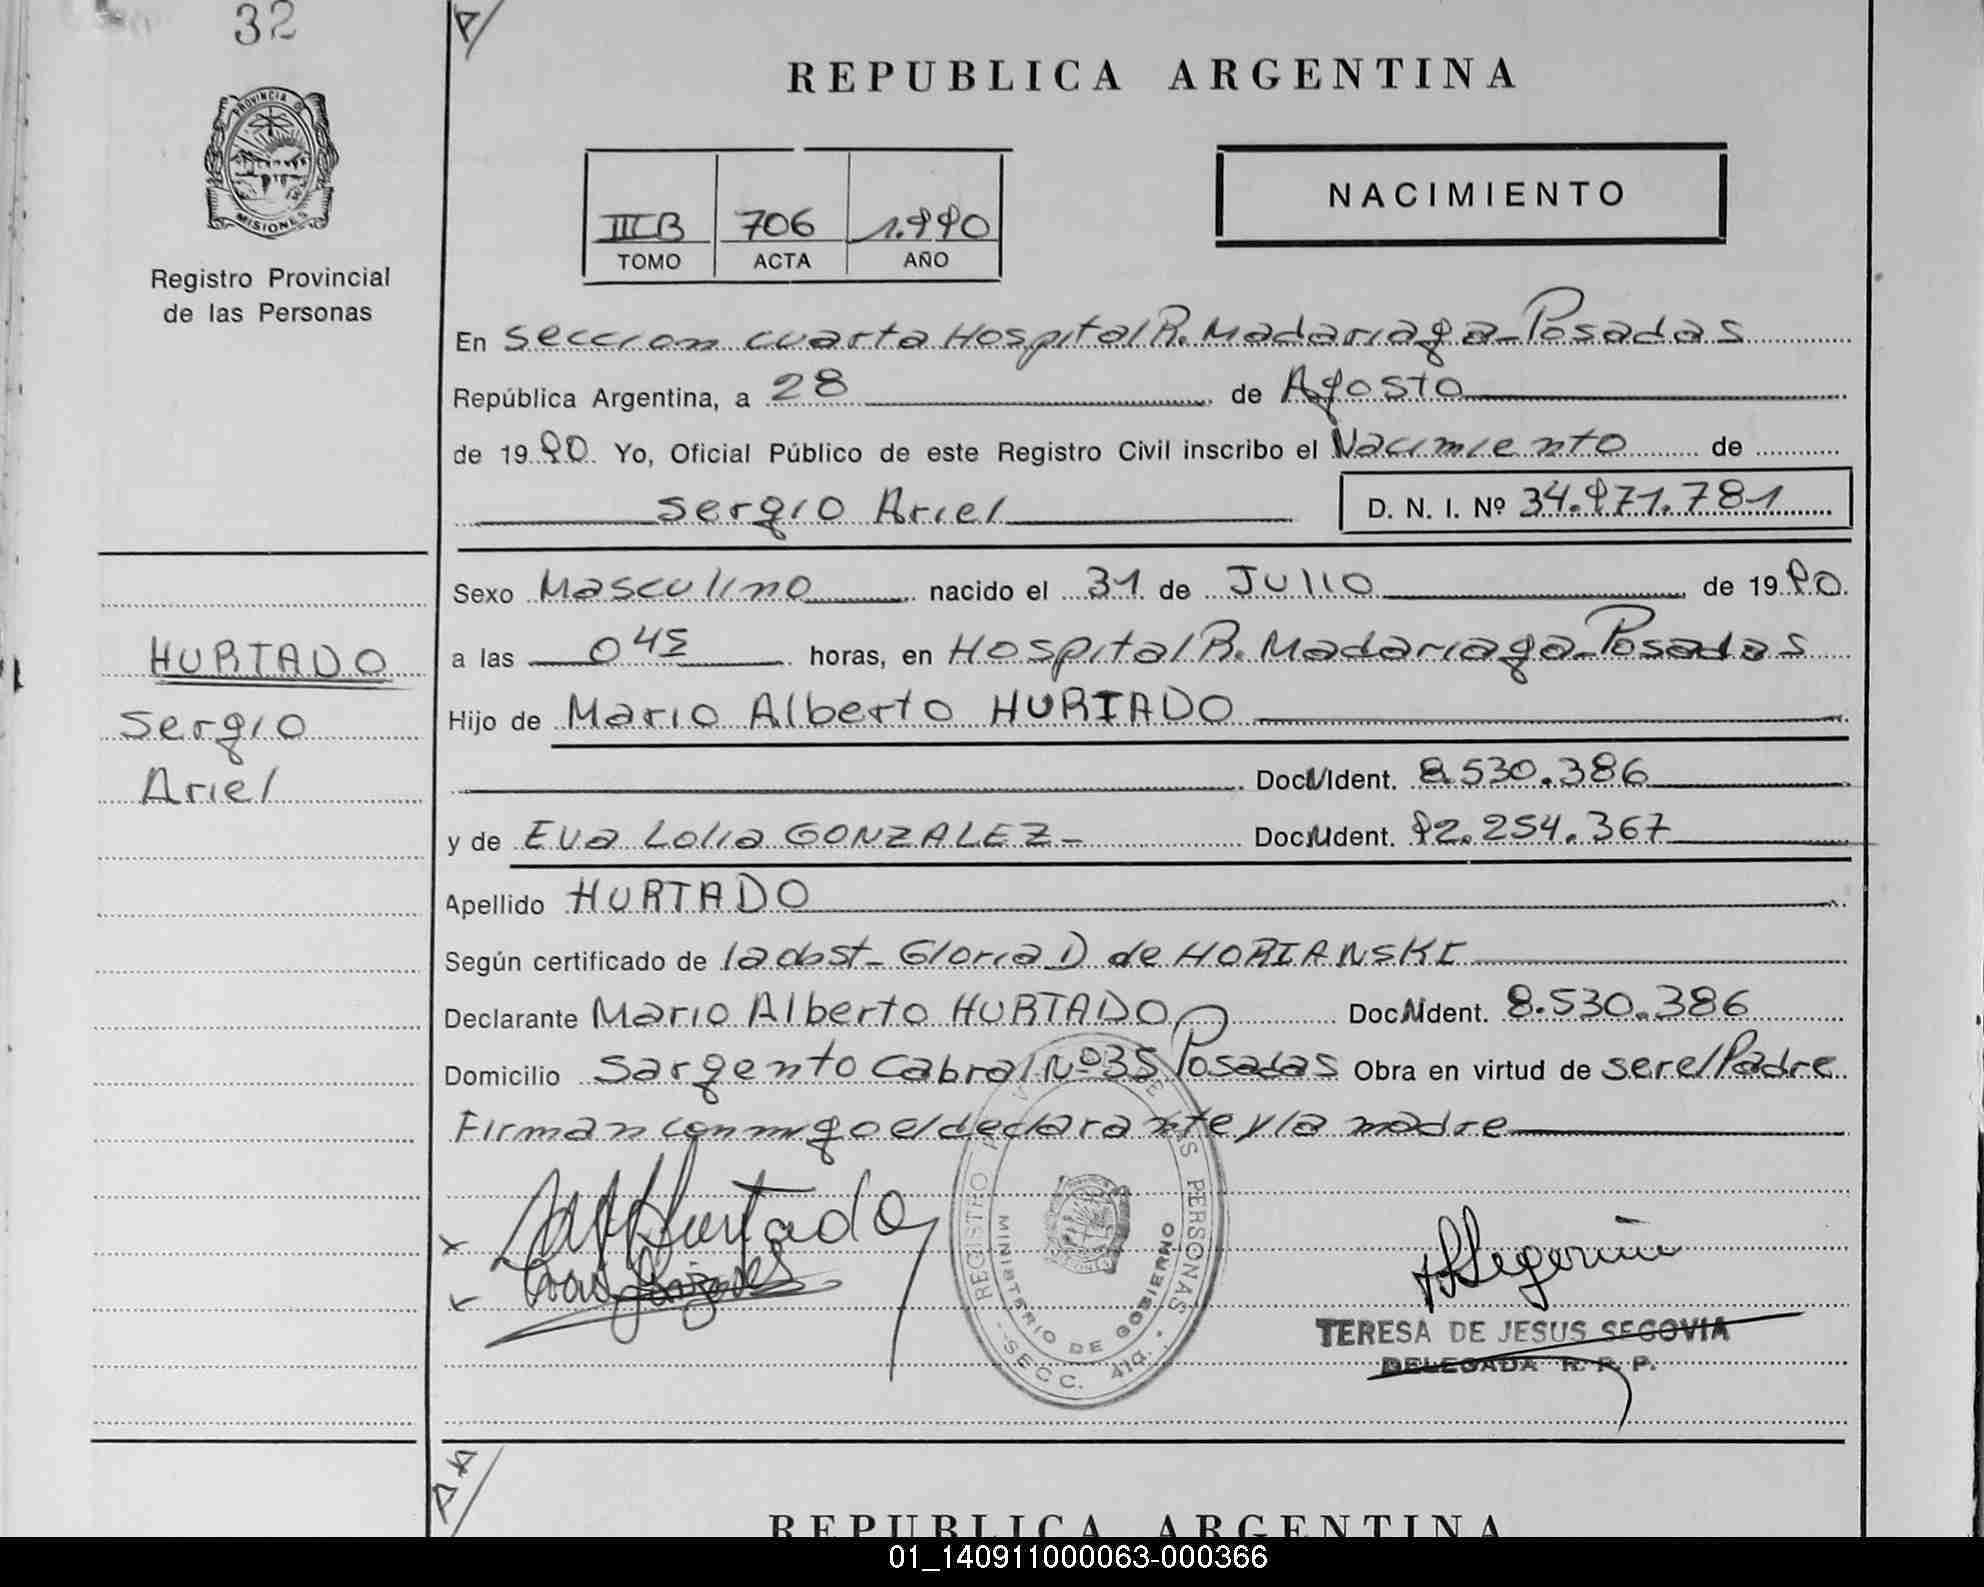 32
REPUBLICA ARGENTINA
PROVINCIA D
MISIONES
Registro Provincial
de las Personas
III B 706 1.990
TOMO ACTA AÑO
NACIMIENTO
En Seccion cuarta Hospital R. Madariaga - Posadas
República Argentina, a 28 de Agosto
de 1990. Yo, Oficial Público de este Registro Civil inscribo el Nacimiento de
Sergio Ariel D. N. I. Nº 34.971.781
Sexo Masculino nacido el 31 de Julio de 1990.
a las 0 45 horas, en Hospital R. Madariaga - Posadas
HURTADO
Sergio
Ariel
Hijo de Mario Alberto HURTADO
Doc. Ident. 8.530.386
y de Eva Lolia GONZALEZ - Doc. Ident. 92.254.367
Apellido HURTADO
Según certificado de la obst - Gloria D de HORIANSKI
Declarante Mario Alberto HURTADO Doc. Ident. 8.530.386
Domicilio Sargento Cabral Nº 35 Posadas Obra en virtud de ser el Padre
Firman conmigo el declarante y la madre
Hurtado
REGISTRO DE LAS PERSONAS
MINISTERIO DE GOBIERNO
SECC. 4ta.
TERESA DE JESUS SEGOVIA
DELEGADA R. P. P.
REPUBLICA ARGENTINA
01_140911000063-000366